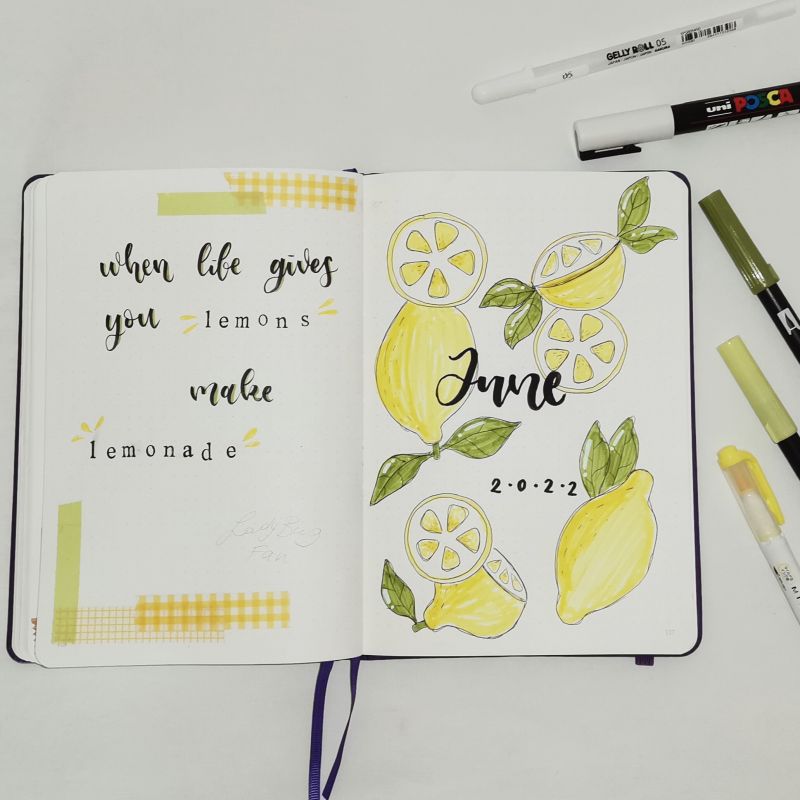 when life gives
you lemons
make
lemonade
LadyBug
Fan
June
2·0·2·2
GELLY ROLL 05
05
uni POSCA